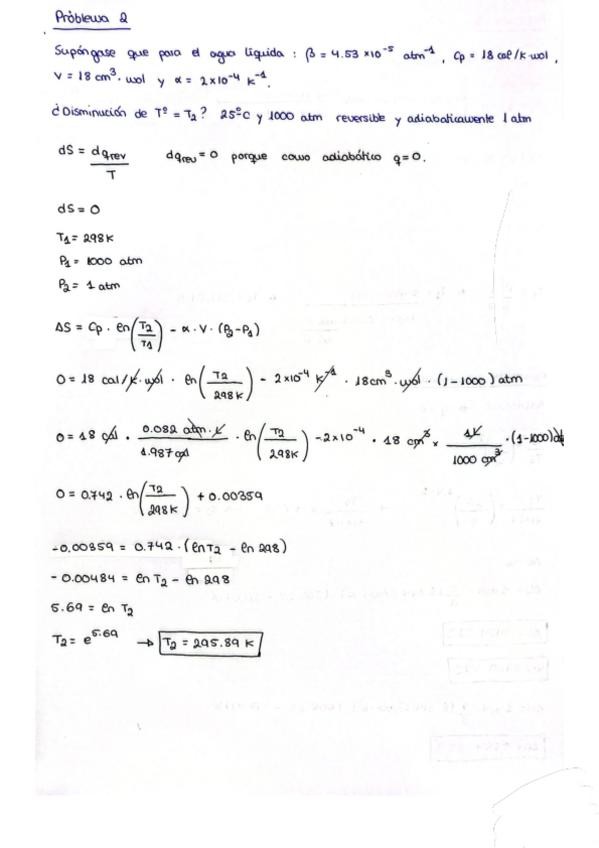 Problema 2
Supóngase que para el agua líquida : β = 4.53 × 10⁻⁵ atm⁻¹ , Cp = 18 cal/k·mol,
V = 18 cm³·mol y α = 2×10⁻⁴ k⁻¹.
¿Disminución de Tª = T₂? 25ºC y 1000 atm reversible y adiabaticamente 1 atm
dS = dqrev / T    dqrev = 0 porque como adiabático q=0.
dS = 0
T₁ = 298 k
P₁ = 1000 atm
P₂ = 1 atm
ΔS = Cp · ln(T₂/T₁) - α · V · (P₂-P₁)
0 = 18 cal/k·mol · ln(T₂/298k) - 2×10⁻⁴ k⁻¹ · 18cm³·mol · (1-1000) atm
0 = 18 cal · 0.082 atm·L/1.987 cal · ln(T₂/298k) - 2×10⁻⁴ · 18 cm³ × 1L/1000 cm³ · (1-1000) atm
0 = 0.742 · ln(T₂/298k) + 0.00359
-0.00359 = 0.742 · (ln T₂ - ln 298)
- 0.00484 = ln T₂ - ln 298
5.69 = ln T₂
T₂ = e^5.69 → T₂ = 295.89 k